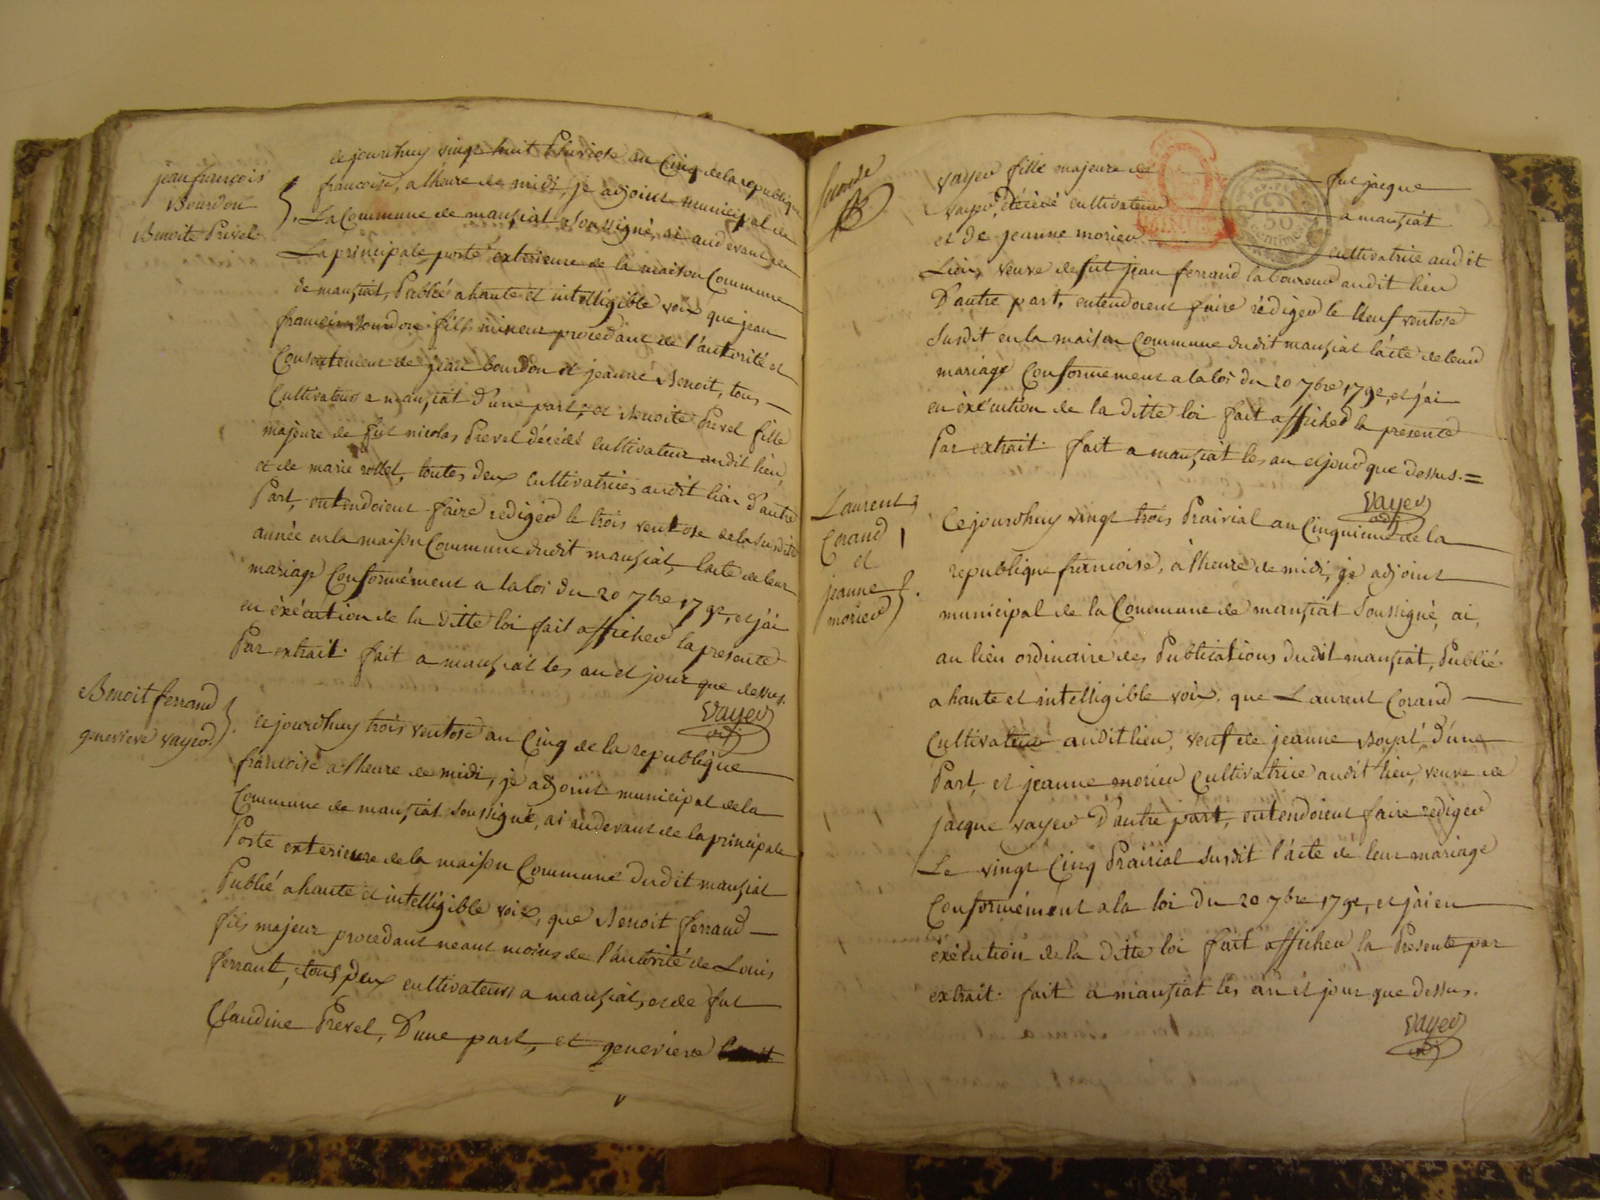 jean françois
Bourdon
Benoite Prevel
ce jourdhuy vingt huit Pluviose an Cinq de la republique
francoise, a lheure de midi, je adjoint municipal de
La Commune de manziat soussigné, ai audevant de
La principale porte exterieure de la maison Commune
de manziat, Publié a haute et intelligible voix que jean
francois Bourdon fils mineur procedant de l'autorité et
Consentement de jean bourdon et jeanne Benoit, tous
Cultivateurs a manziat d'une part, et Benoite Prevel fille
majeure de fut nicolas Prevel décédé cultivateur audit lieu,
et de marie rollet, toutes deux cultivatrices audit lieu d'autre
Part, entendoient faire rediger le trois ventose de la susdite
année en la maison Commune dudit manziat, lacte de leur
mariage Conformément a la loi du 20 7bre 1792, et j'ai
en èxécution de la ditte loi fait afficher la presente
Par extrait. fait a manziat les an et jour que dessus.
vayer
Benoit ferrand
genevieve vayer
ce jourdhuy trois ventose an Cinq de la republique
francoise a lheure de midi, je adjoint municipal de la
Commune de manziat soussigné, ai audevant de la principale
Porte exterieure de la maison Commune dudit manziat
Publié a haute et intelligible voix, que Benoit ferrand
fils majeur procedant neant moins de l'autorité de Louis
ferrant, tous deux cultivateurs a manziat, et de fut
Claudine Prevel, D'une part, et genevieve
vayer fille majeure de fut jacque
vayer, décédé cultivateur a manziat
et de jeanne morier cultivatrice audit
Lieu, veuve de fut jean ferrand laboureur audit lieu
D'autre part, entendoient faire rédiger le Neuf ventose
susdit en la maison Commune dudit manziat lácte de leur
mariage Conformement a la loi du 20 7bre 1792, et j'ai
en èxécution de la ditte loi fait afficher la presente
Par extrait. fait a manziat les an et jour que dessus. =
vayer
Laurent
Corand
et
jeanne
morier
Ce jourdhuy vingt trois Prairial an Cinquieme de la
republique francoise, à lheure de midi, je adjoint
municipal de la Commune de manziat Soussigné, ai,
au lieu ordinaire des Publications dudit manziat, Publié
a haute et intelligible voix, que Laurent Corand
Cultivateur audit lieu, veuf de jeanne Boyat, d'une
Part, et jeanne morier Cultivatrice audit lieu, veuve de
jacque vayer D'autre part, entendoient faire rediger
Le vingt Cinq Prairial susdit l'ácte de leur mariage
Conformément a la loi du 20 7bre 1792, et j'ai en
exécution de la ditte loi fait afficher la Presente par
extrait. fait a manziat les an et jour que dessus.
vayer